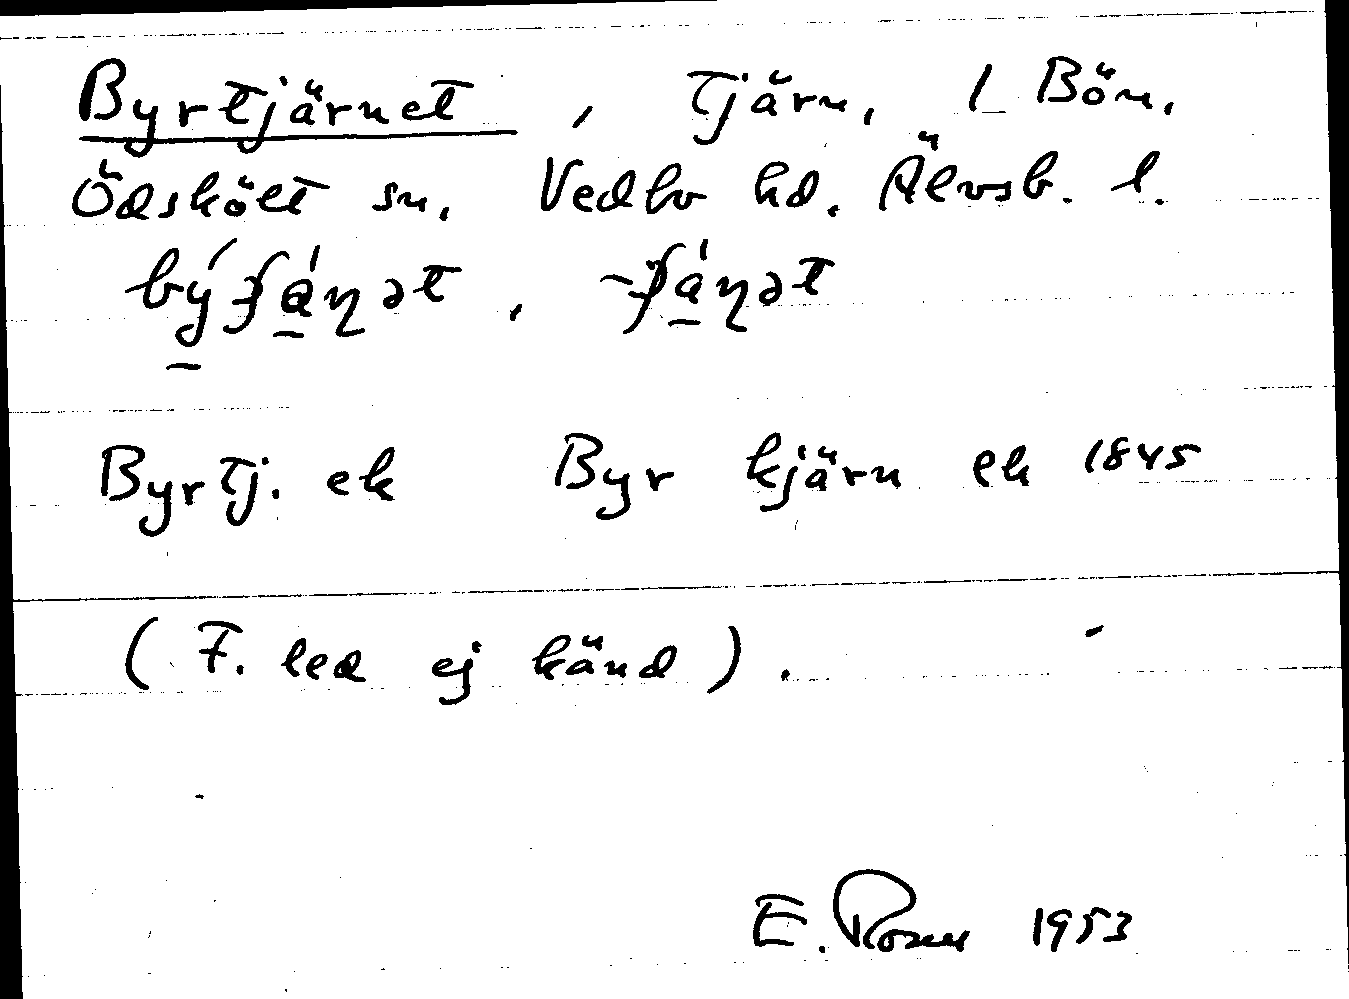 Byrtjärnet, Tjärn, 1 Bön,
Ödskölt sn, Vedbo hd. Älvsb. l.
Byrtj. ek Byr kjärn ek 1845
(F. led ej känd).
E. Rosell 1953